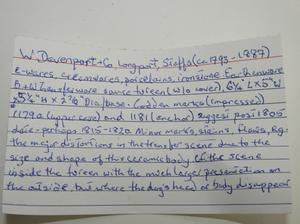 W. Davenport & Co, Longport, Staffs (ca. 1793 - 1887)
E-wares, creamwares, porcelains, ironstone Earthenware
B + W transferware sauce tureen (w/o cover) 6¼" L x 5" W
x 5¼" H x 2⅞" Dia/base. Godden marks (impressed)
1179a (upper case) and 1181 (anchor) suggest post 1805
date - perhaps 1815-1820. Minor marks, stains, flaws, e.g.
the major distortions in the transfer scene due to the
size and shape of this ceramic body. Cf the scene
inside the tureen with the much larger presentation on
the outside, but where the dog's head or body disappear